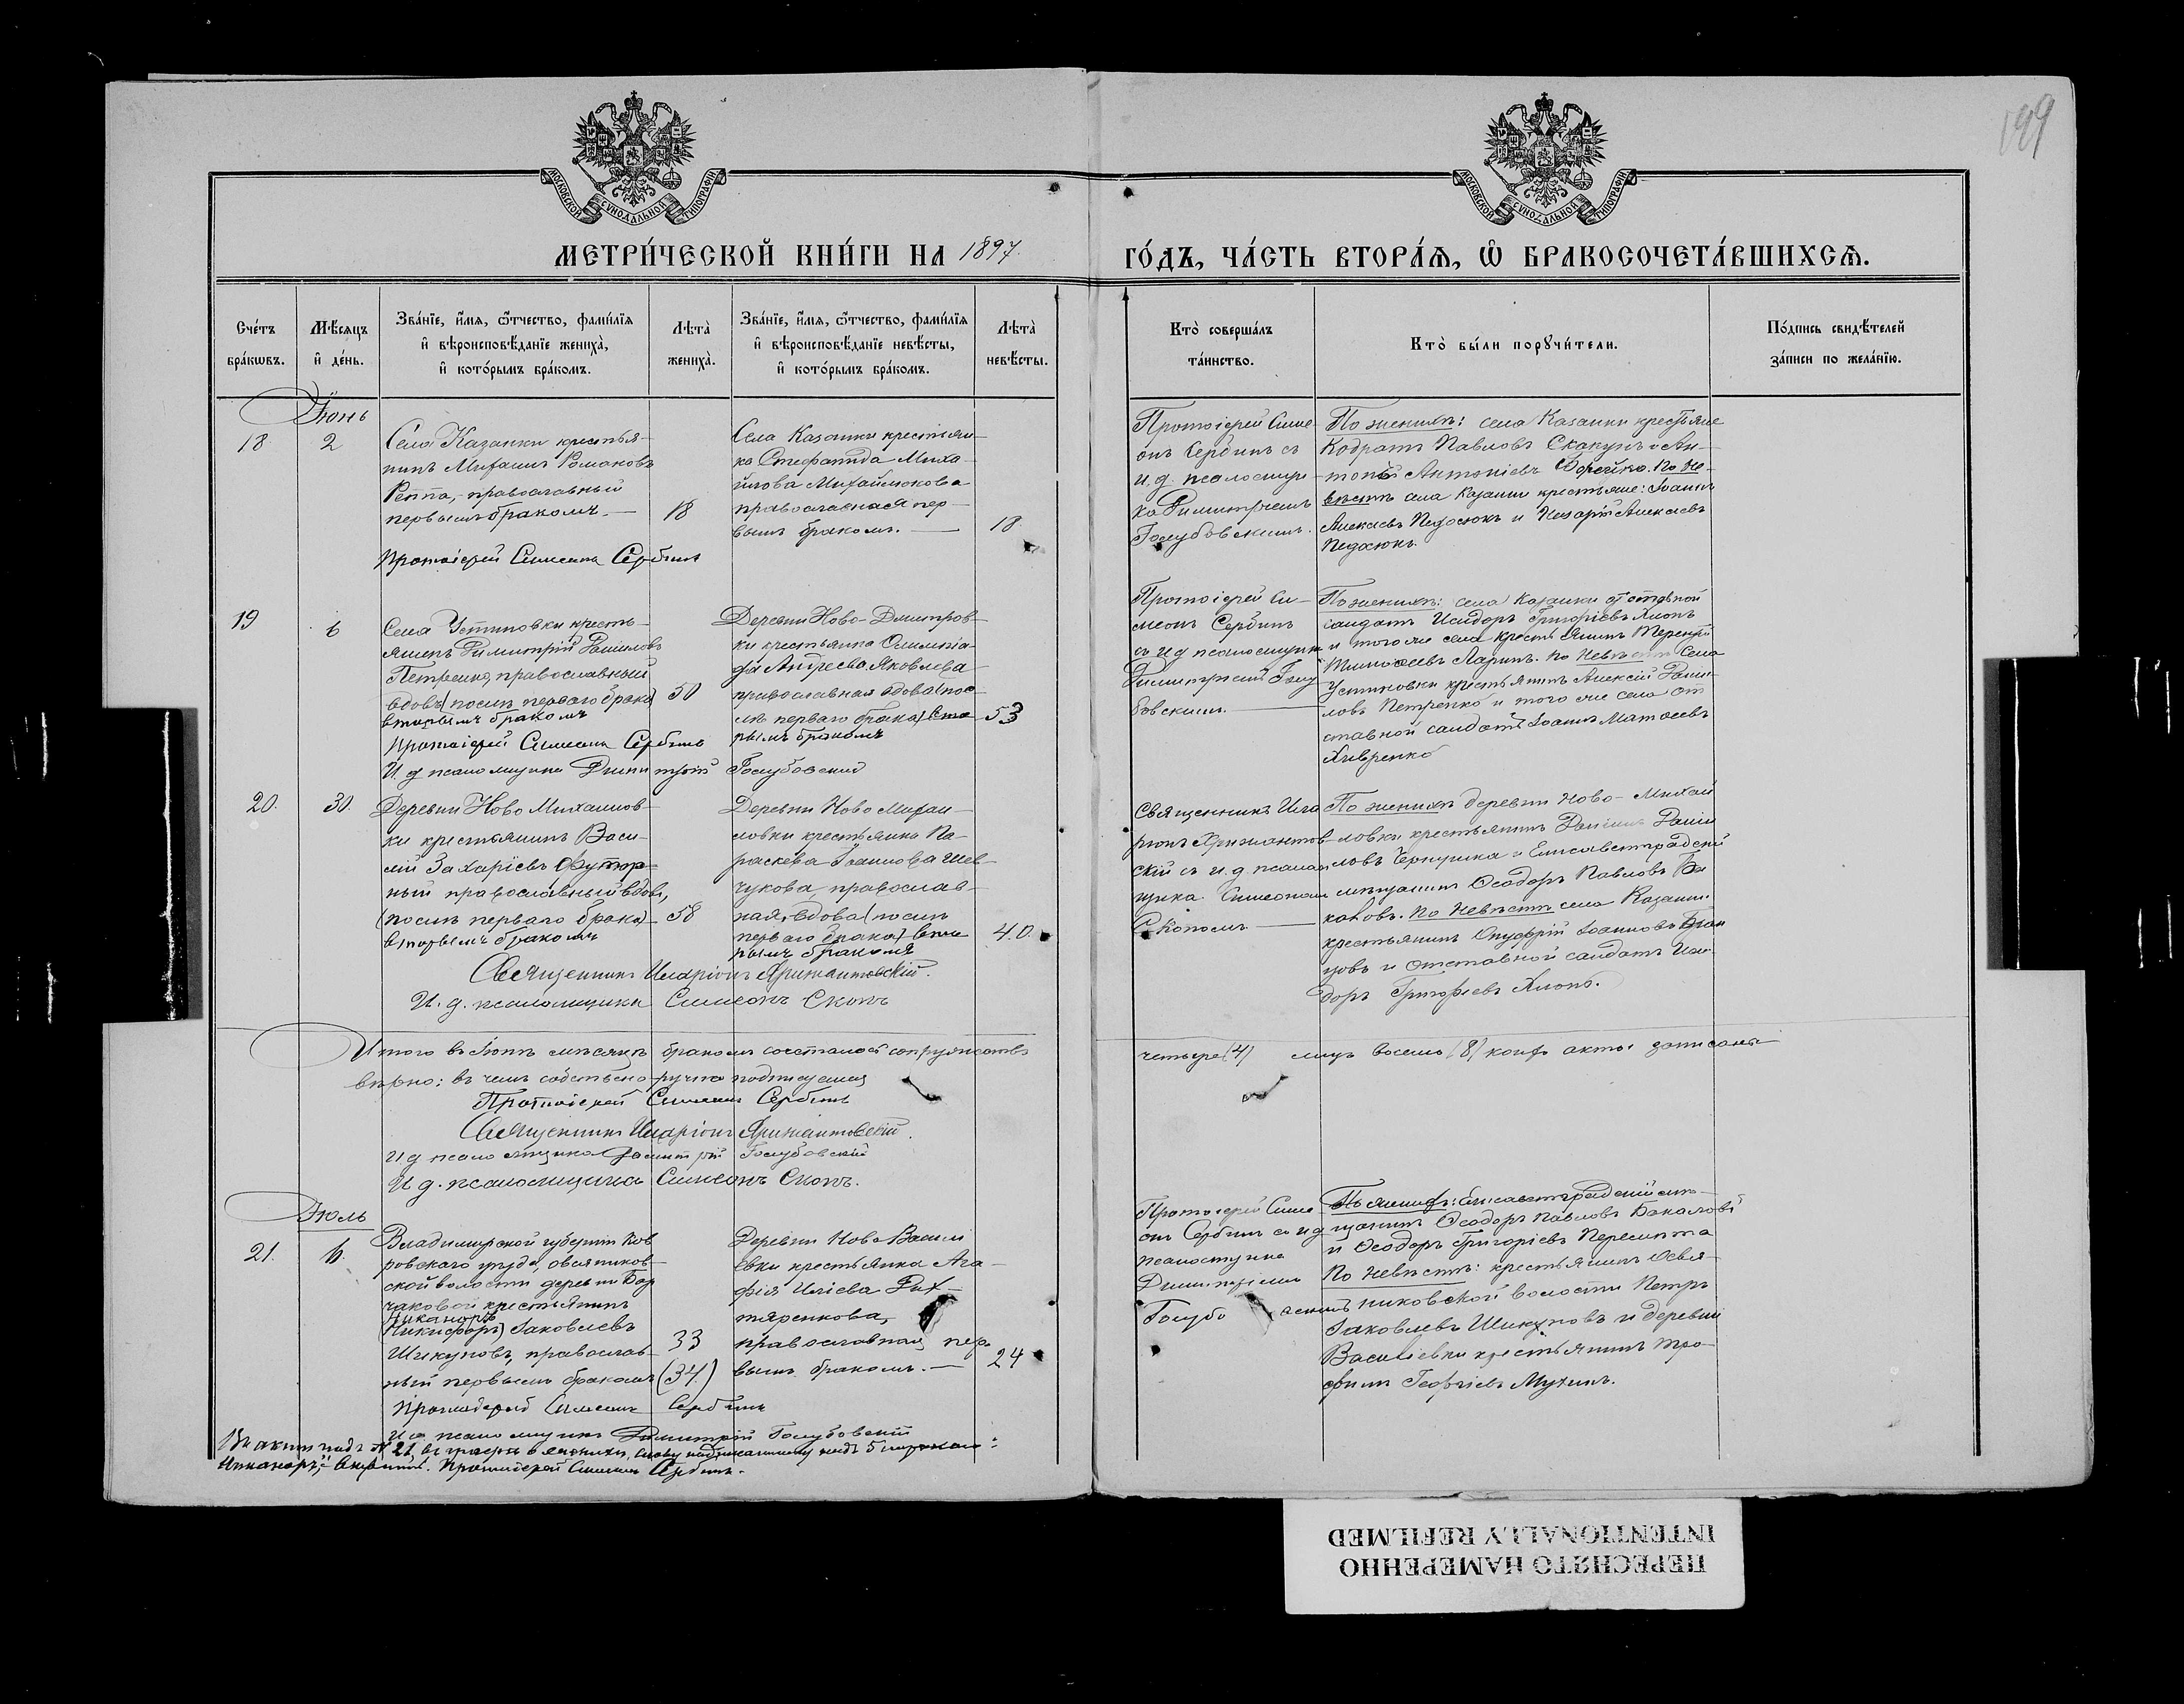 199
МОСКОВСКОЙ СѴНОДАЛЬНОЙ ТИПОГРАФІИ
МОСКОВСКОЙ СѴНОДАЛЬНОЙ ТИПОГРАФІИ
МЕТРИ́ЧЕСКОЙ КНИ́ГИ НА 1897.
ГО́ДЪ, ЧА́СТЬ ВТОРА́Ѧ, Ѽ БРАКОСОЧЕТА́ВШИХСѦ.
Сче́тъ
бра́кѡвъ.
Мѣ́сѧцъ
и҆ де́нь.
Зва́нїе, и҆́мѧ, ѻ҆́тчество, фами́лїѧ
и҆ вѣроисповѣ́данїе жениха̀,
и҆ кото́рымъ бра́комъ.
Лѣта̀
жениха̀.
Зва́нїе, и҆́мѧ, ѻ҆́тчество, фами́лїѧ
и҆ вѣроисповѣ́данїе невѣ́сты,
и҆ кото́рымъ бра́комъ.
Лѣта̀
невѣ́сты.
Кто̀ соверша́лъ
та́инство.
Кто̀ бы́ли порꙋчи́тели.
По́дпись свидѣ́телей
за́писи по жела́нїю.
Іюнь
18
2
Села Казанки крестья-
нинъ Михаилъ Романовъ
Реппа, православный
первымъ бракомъ. —
18
Села Казанки крестьян-
ка Стефанида Миха-
йлова Михайлюкова
православная пер-
вымъ бракомъ. —
18
Протоіерей Симе-
онъ Сербинъ съ
и.д. псаломщи-
ка Димитріемъ
Голубовскимъ.
По женихѣ: села Казанки крестьяне
Кодратъ Павловъ Скакунъ и Ан-
тоній Антоніевъ. По не-
вѣстѣ села Казанки крестьяне: Іоаннъ
Алексѣевъ Педосюкъ и Назарій Алексѣевъ
Педосюкъ.
Протоіерей Симеонъ Сербинъ
19
6
Села Устиновки кресть-
янинъ Димитрій Даниловъ
Петренко, православный
вдовъ (послѣ перваго брака)
вторымъ бракомъ
50
Деревни Ново-Дмитров-
ки крестьянка Олимпіа-
да Андреева Яковлева
православная вдова (пос-
лѣ перваго брака) вто-
рымъ бракомъ
53
Протоіерей Си-
меонъ Сербинъ
съ и д псаломщика
Димитріемъ Голу-
бовскимъ. —
По женихѣ: села Казанки отставной
солдатъ Исидоръ Григоріевъ Хлопъ
и того же села крестьянинъ Терентій
Тимоѳеевъ Ларинъ. По невѣстѣ села
Устиновки крестьянинъ Алексій Дани-
ловъ Петренко и того же села от-
ставной солдатъ Іоаннъ Матѳеевъ
Хивренко
Протоіерей Симеонъ Сербинъ
И. д псаломщика Димитрій Голубовскій
20.
30.
Деревни Ново Михайлов-
ки крестьянинъ Васи-
лій Захаріевъ Футор-
ный православный вдовъ,
(послѣ перваго брака)
вторымъ бракомъ
58
Деревни Ново Михай-
ловки крестьянка Па-
раскева Іоаннова Шев-
чукова православ-
ная, вдова (послѣ
перваго брака) вто-
рымъ бракомъ
40.
Священникъ Ила-
ріонъ Крижантов-
скій съ и.д. псалом-
щика Симеономъ
Скопомъ —
По женихѣ деревни Ново-Михай-
ловки крестьянинъ Даніилъ Дані-
ловъ Чернушка и Елисаветградскій
мѣщанинъ Ѳеодоръ Павловъ Ба-
каловъ. По невѣстѣ села Казанки
крестьянинъ Онуфрій Іоанновъ
и отставной солдатъ Иси-
доръ Григоріевъ Хлопъ.
Священникъ Иларіонъ Крижантовскій.
И. д. псаломщика Симеонъ Скопъ
Итого въ Іюнѣ мѣсяцѣ бракомъ сочеталось супружествъ четыре (4) лицъ восемь (8) акты записаны
вѣрно: въ чемъ собственоручно подписуемся
Протоіерей Симеонъ Сербинъ
Священникъ Иларіонъ Крижантовскій.
И.д псаломщика Димитрій Голубовскій
И д. псаломщика Симеонъ Скопъ.
Іюль
21.
6.
Владимирской губерніи Ков-
ровскаго уѣзда, овсяников-
ской волости деревни
крестьянинъ
Никаноръ
(Никифоръ) Іаковлевъ
Шикуновъ, православ-
ный первымъ бракомъ
33
(34.)
Деревни Ново Васили-
евки крестьянка Ага-
фія Иліева Дих-
тяренкова,
православная, пер-
вымъ бракомъ. —
24
Протоіерей Симе-
онъ Сербинъ съ и д
псаломщика
Димитріемъ
Голубовскимъ
По женихѣ: Елисаветградскій мѣ-
щанинъ Ѳеодоръ Павловъ Бакаловъ
и Ѳеодоръ Григоріевъ Пересипка
По невѣстѣ: крестьянинъ Овся-
никовской волости Петръ
Іаковлевъ Шикуновъ и деревни
Василіевки крестьянинъ Тро-
фимъ Георгіевъ Мухинъ.
Протоіерей Симеонъ Сербинъ
И д псаломщика Димитрій Голубовскій
Въ актѣ подъ № 21, въ графѣ о женихѣ, слову надписанному надъ 5 строкою:
„Никаноръ,“ вѣрить. Протоіерей Симеонъ Сербинъ.
ПЕРЕСНЯТО НАМЕРЕННО
INTENTIONALLY REFILMED